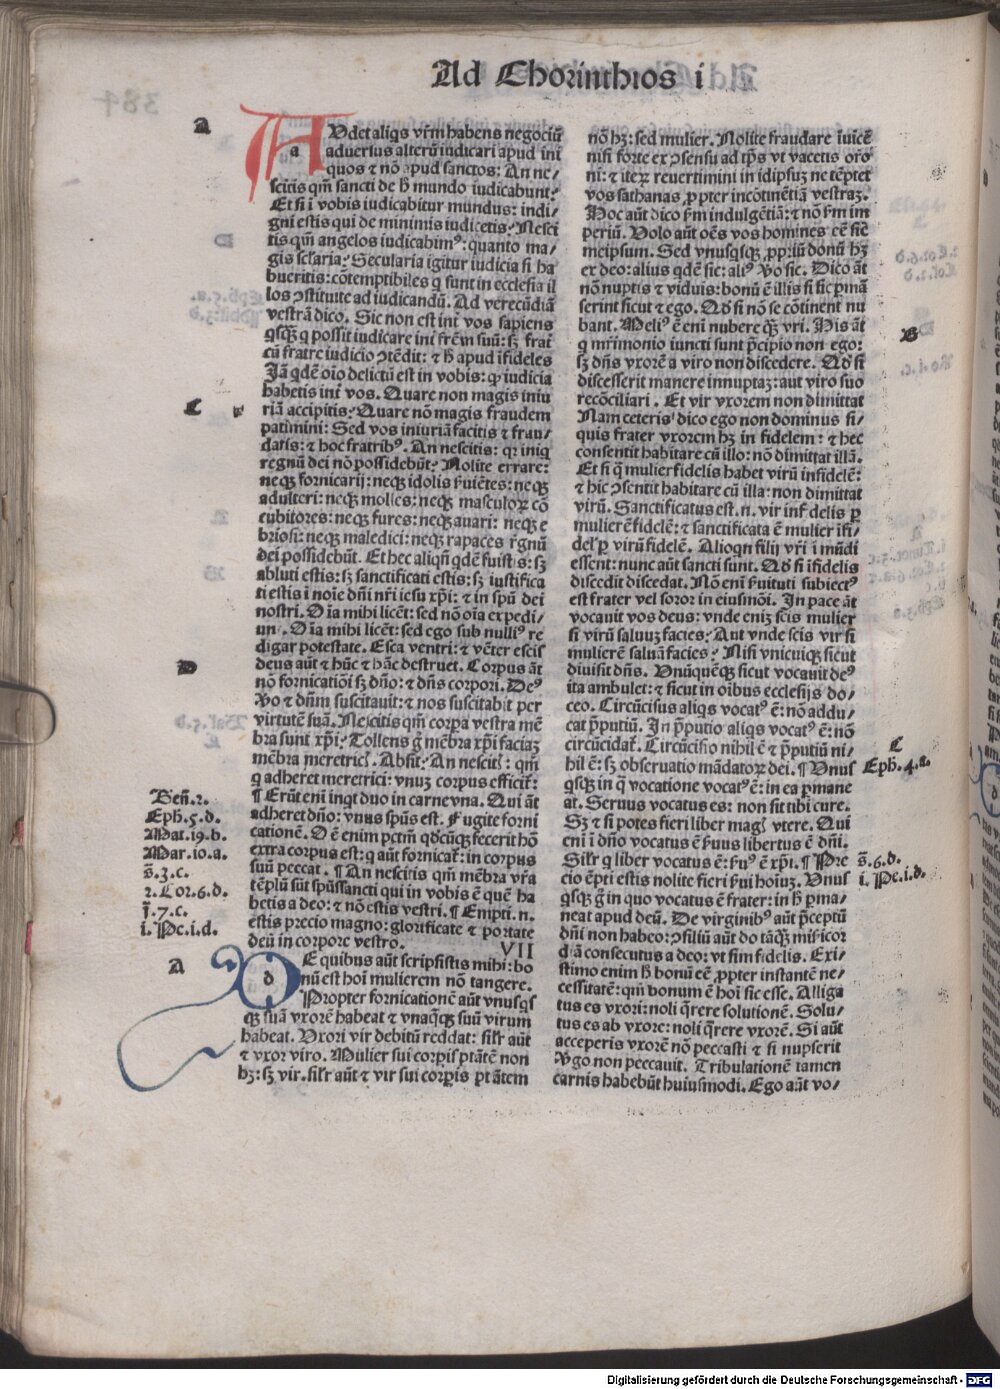 Ad Chorinthios i
A
AVdet aliqs vr̄m habens negociū
a
aduersus alterū iudicari apud ini
quos ⁊ nō apud sanctos: An ne/
scitis qm̄ sancti de h̄ mundo iudicabunt?
Et si i vobis iudicabitur mundus: indi/
gni estis qui de minimis iudicetis? Nesci
tis qm̄ angelos iudicabimꝰ: quanto ma/
gis scl̄aria? Secularia igitur iudicia si ha
bueritis: cōtemptibiles q sunt in ecclesia il
los ꝯstituite ad iudicandū. Ad verecūdiā
vestrā dico. Sic non est int̄ vos sapiens
qsqꝫ q possit iudicare int̄ frēm suū: sꝫ frat̄
cū fratre iudicio ꝯtēdit: ⁊ h̄ apud ifideles
Jā qdē oīo delictū est in vobis: ꝙ iudicia
habetis int̄ vos. Quare non magis iniu
C
riā accipitis? Quare nō magis fraudem
patimini: Sed vos iniuriā facitis ⁊ frau/
datis: ⁊ hoc fratribꝰ. An nescitis: qꝛ iniq
regnū dei nō possidebūt? Nolite errare:
neqꝫ fornicarij: neqꝫ idolis ẜuiētes: neqꝫ
adulteri: neqꝫ molles: neqꝫ masculoꝝ cō
cubitores: neqꝫ fures: neqꝫ auari: neqꝫ e
briosi: neqꝫ maledici: neqꝫ rapaces r̄gnū
dei possidebūt. Et hec aliqn̄ qdē fuistis: sꝫ
abluti estis: sꝫ sanctificati estis: sꝫ iustifica
ti estis i noie dn̄i nr̄i iesu xp̄i: ⁊ in spū dei
nostri. Oīa mihi licēt: sed nō oīa expedi/
unt. Oīa mihi licēt: sed ego sub nulliꝰ re
digar potestate. Esca ventri: ⁊ vēter escis
D
deus aūt ⁊ hūc ⁊ hāc destruet. Corpus āt
nō fornicatiōi sꝫ dn̄o: ⁊ dn̄s corpori. Deꝰ
ꝟo ⁊ dn̄m suscitauit: ⁊ nos suscitabit per
virtutē suā. Nescitis qm̄ corpa vestra mē
bra sunt xp̄i? Tollens g̊ mēbra xp̄i faciaꝫ
mēbra meretricꝭ. Absit. An nescitꝭ: qm̄
q adheret meretrici: vnuꝫ corpus efficit̄?
Gen̄.2.
¶ Erūt eni inqt duo in carne vna. Qui āt
Eph.5.d.
adheret dn̄o: vnus spūs est. Fugite forni
Mat.19.b.
cationē. Oē enim pctm̄ qdcūqꝫ fecerit hō
Mar.10.a.
extra corpus est: q aūt fornicat̄: in corpus
s̄.3.c.
suū peccat. ¶ An nescitis qm̄ mēbra vr̄a
2.Cor.6.d.
tēplū sūt spūssancti qui in vobis ē quē ha
j̄.7.c.
betis a deo: ⁊ nō estis vestri. ¶ Empti.n.
i.Pe.i.d.
estis precio magno: glorificate ⁊ portate
deū in corpore vestro. VII
A
DE quibus aūt scripsistis mihi: bo
d
nū est hoī mulierem nō tangere.
Propter fornicationē aūt vnusqs
qꝫ suā vxorē habeat ⁊ vnaqꝫqꝫ suū virum
habeat. Vxori vir debitū reddat: silr̄ aūt
⁊ vxor viro. Mulier sui corpis ptātē non
hꝫ: sꝫ vir. silr̄ aūt ⁊ vir sui corpis ptātem
nō hꝫ: sed mulier. Nolite fraudare iuicē
nisi forte ex ꝯsensu ad tp̄s vt vacetis orō
ni: ⁊ iteꝝ reuertimini in idipsuꝫ ne tēptet
vos sathanas ꝓpter incōtinētiā vestraꝫ.
Hoc aūt dico ẜm indulgētiā: ⁊ nō ẜm im
periū. Volo aūt oēs vos homines eē sic̄
meipsum. Sed vnusqsqꝫ ꝓpiū donū hꝫ
ex deo: alius qdē sic: aliꝰ ꝟo sic. Dico āt
nō nuptis ⁊ viduis: bonū ē illis si sic pmā
serint sicut ⁊ ego. Qd si nō se cōtinent nu
B
bant. Meliꝰ ē eni nubere qꝫ vri. His āt
q mr̄imonio iuncti sunt p̄cipio non ego:
sꝫ dn̄s vxorē a viro non discedere. Qd si
discesserit manere innuptaꝫ: aut viro suo
recōciliari. Et vir vxorem non dimittat
Nam ceteris dico ego non dominus si/
quis frater vxorem hꝫ infidelem: ⁊ hec
consentit habitare cū illo: nō dimittat illā.
Et si q mulier fidelis habet virū infidelē:
⁊ hic ꝯsentit habitare cū illa: non dimittat
virū. Sanctificatus est.n. vir infidelis p
mulierē fidelē: ⁊ sanctificata ē mulier ifi/
delꝭ p virū fidelē. Alioqn filij vr̄i i mūdi
essent: nunc aūt sancti sunt. Qd si ifidelis
discedit discedat. Nō eni ẜuituti subiectꝰ
est frater vel soror in eiusmōi. In pace āt
vocauit vos deus: vnde eniꝫ scis mulier
si virū saluuꝫ facies? Aut vnde scis vir si
mulierē saluā facies? Nisi vnicuiqꝫ sicut
diuisit dn̄s. Vnūquēqꝫ sicut vocauit deꝰ
ita ambulet: ⁊ sicut in oibus ecclesijs do/
ceo. Circūcisus aliqs vocatꝰ ē: nō addu/
cat p̄putiū. In p̄putio aliqs vocatꝰ ē: nō
circūcidat̄. Circūcisio nihil ē ⁊ p̄putiū ni/
C
hil ē: sꝫ obseruatio mādatoꝝ dei. ¶ Vnus
Eph.4.a.
qsqꝫ in q vocatione vocatꝰ ē: in ea pmane
at. Seruus vocatus es: non sit tibi cure.
Sꝫ ⁊ si potes fieri liber magꝭ vtere. Qui
eni i dn̄o vocatus ē ẜuus libertus ē dn̄i.
Silr̄ q liber vocatus ē: ẜuꝰ ē xp̄i. ¶ Pre
s̄.6.d.
cio ēpti estis nolite fieri ẜui hoīuꝫ. Vnus
i.Pe.i.d.
qsqꝫ g̊ in quo vocatus ē frater: in h̄ pma/
neat apud deū. De virginibꝰ aūt p̄ceptū
dn̄i non habeo: ꝯsiliū aūt do tāqꝫ misicor
diā consecutus a deo: vt sim fidelis. Exi/
stimo enim h̄ bonū eē ꝓpter instantē ne/
cessitatē: qm̄ bonum ē hoī sic esse. Alliga
tus es vxori: noli q̄rere solutionē. Solu/
tus es ab vxore: noli q̄rere vxorē. Si aūt
acceperis vxorē nō peccasti ⁊ si nupserit
ꝟgo non peccauit. Tribulationē tamen
carnis habebūt huiusmodi. Ego aūt vo/
Digitalisierung gefördert durch die Deutsche Forschungsgemeinschaft - DFG